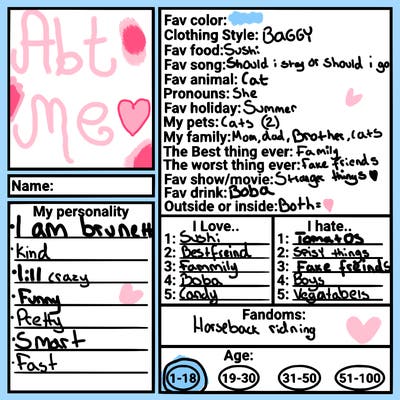 Abt
Me
Name:
My personality
I am brunett
Kind
lill crazy
Funny
Pretty
Smart
Fast
Fav color:
Clothing Style: BAGGY
Fav food: Sushi
Fav song: Should i stay or should i go
Fav animal: Cat
Pronouns: She
Fav holiday: Summer
My pets: Cats (2)
My family: Mom, dad, Brother, cats
The Best thing ever: Family
The worst thing ever: Fake friends
Fav show/movie: Strange things
Fav drink: Boba
Outside or inside: Both=
I Love..
1: Sushi
2: Bestfreind
3: Fammily
4: Boba
5: Candy
I hate..
1: Tomatos
2: Spisy things
3: Fake freinds
4: Boys
5: Vegatabels
Fandoms:
Horseback ridning
Age:
1-18 19-30 31-50 51-100